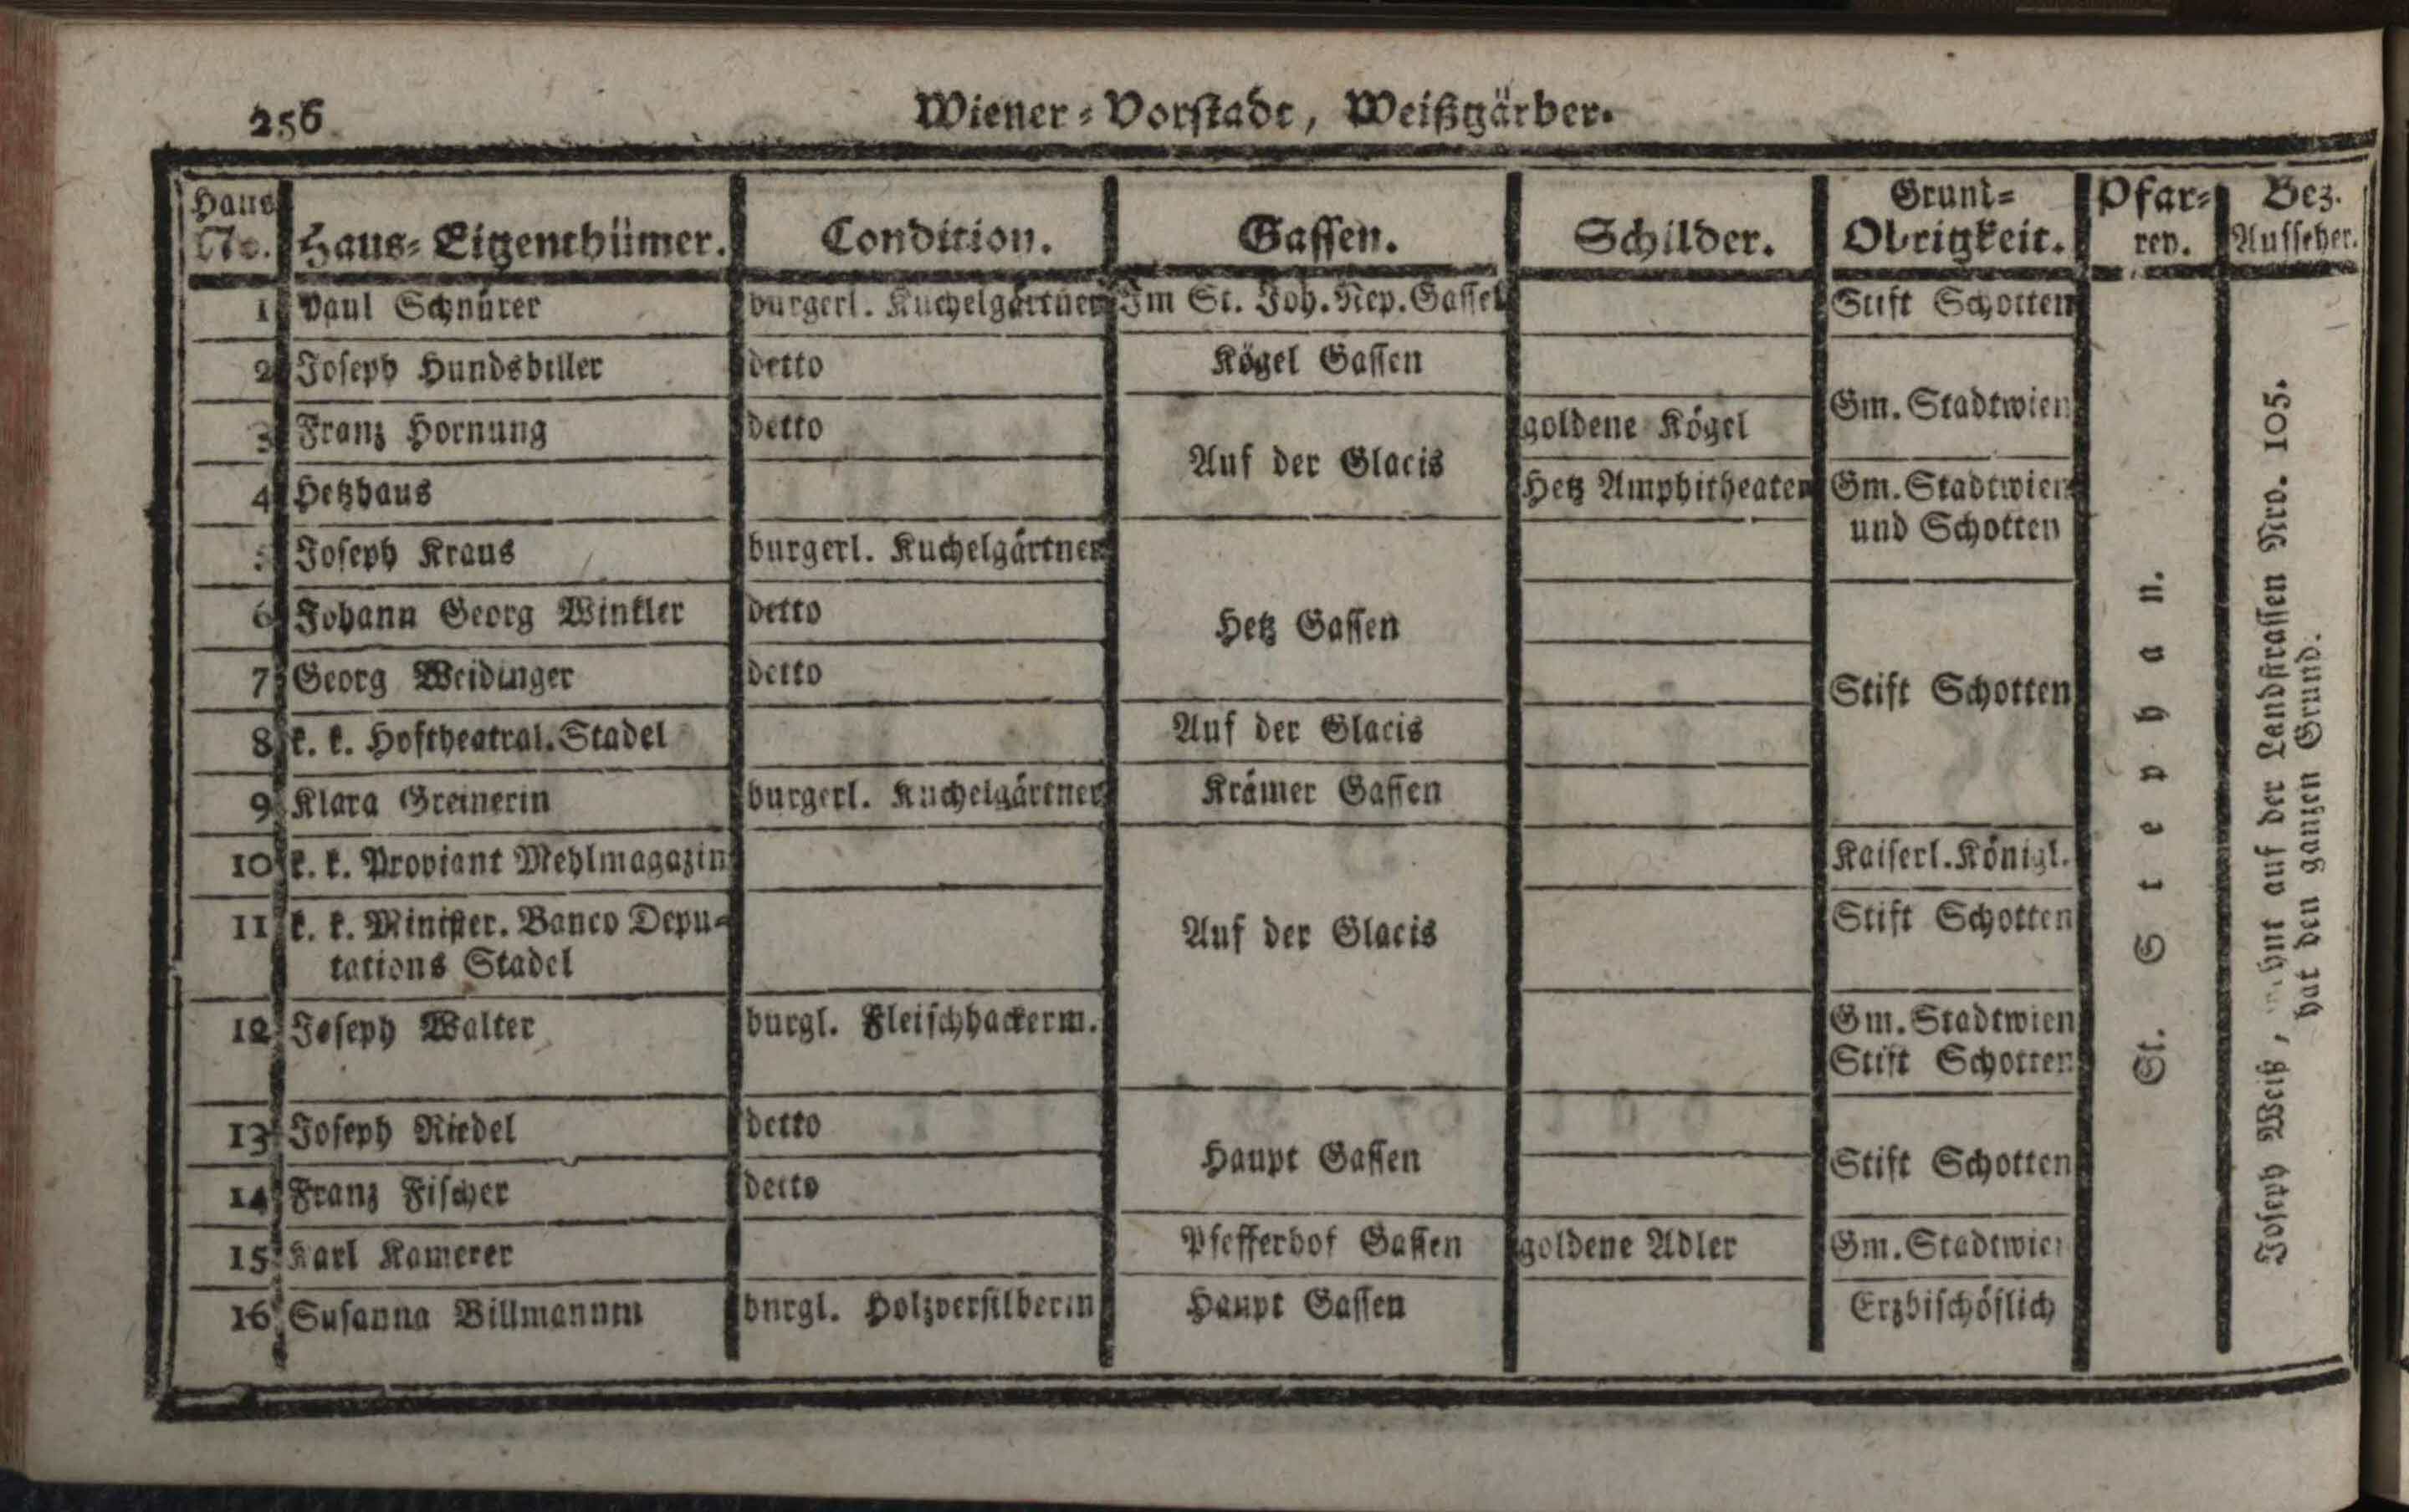 256
Wiener-Vorstadt, Weißgärber.
Haus No. Haus-Eigenthümer. Condition. Gassen. Schilder. Grund-Obrigkeit. Pfarren. Bez. Aufseher.
1 Paul Schnürer burgerl. Kuchelgärtner Im St. Joh. Nep. Gassel Stift Schotten
2 Joseph Hundsbiller detto Kögel Gassen
Gm. Stadtwien
3 Franz Hornung detto goldene Kögel
Auf der Glacis
4 Hetzhaus Hetz Amphitheater Gm. Stadtwien
und Schotten
5 Joseph Kraus burgerl. Kuchelgärtner
6 Johann Georg Winkler detto
Hetz Gassen
7 Georg Weidinger detto
Stift Schotten
8 k. k. Hoftheatral. Stadel Auf der Glacis
9 Klara Greinerin burgerl. Kuchelgärtner Krämer Gassen
10 k. k. Proviant Mehlmagazin Kaiserl. Königl.
11 k. k. Minister. Banco Depu-
tations Stadel
Auf der Glacis
Stift Schotten
12 Joseph Walter burgl. Fleischhackerm. Gm. Stadtwien
Stift Schotten
13 Joseph Riedel detto
Haupt Gassen Stift Schotten
14 Franz Fischer detto
15 Karl Kamerer Pfefferhof Gassen goldene Adler Gm. Stadtwien
16 Susanna Billmannin bnrgl. Holzversilberin Haupt Gassen Erzbischöflich
St. Stephan.
Joseph Weiß, auf der Landstrassen Nro. 105.
hat den ganzen Grund.